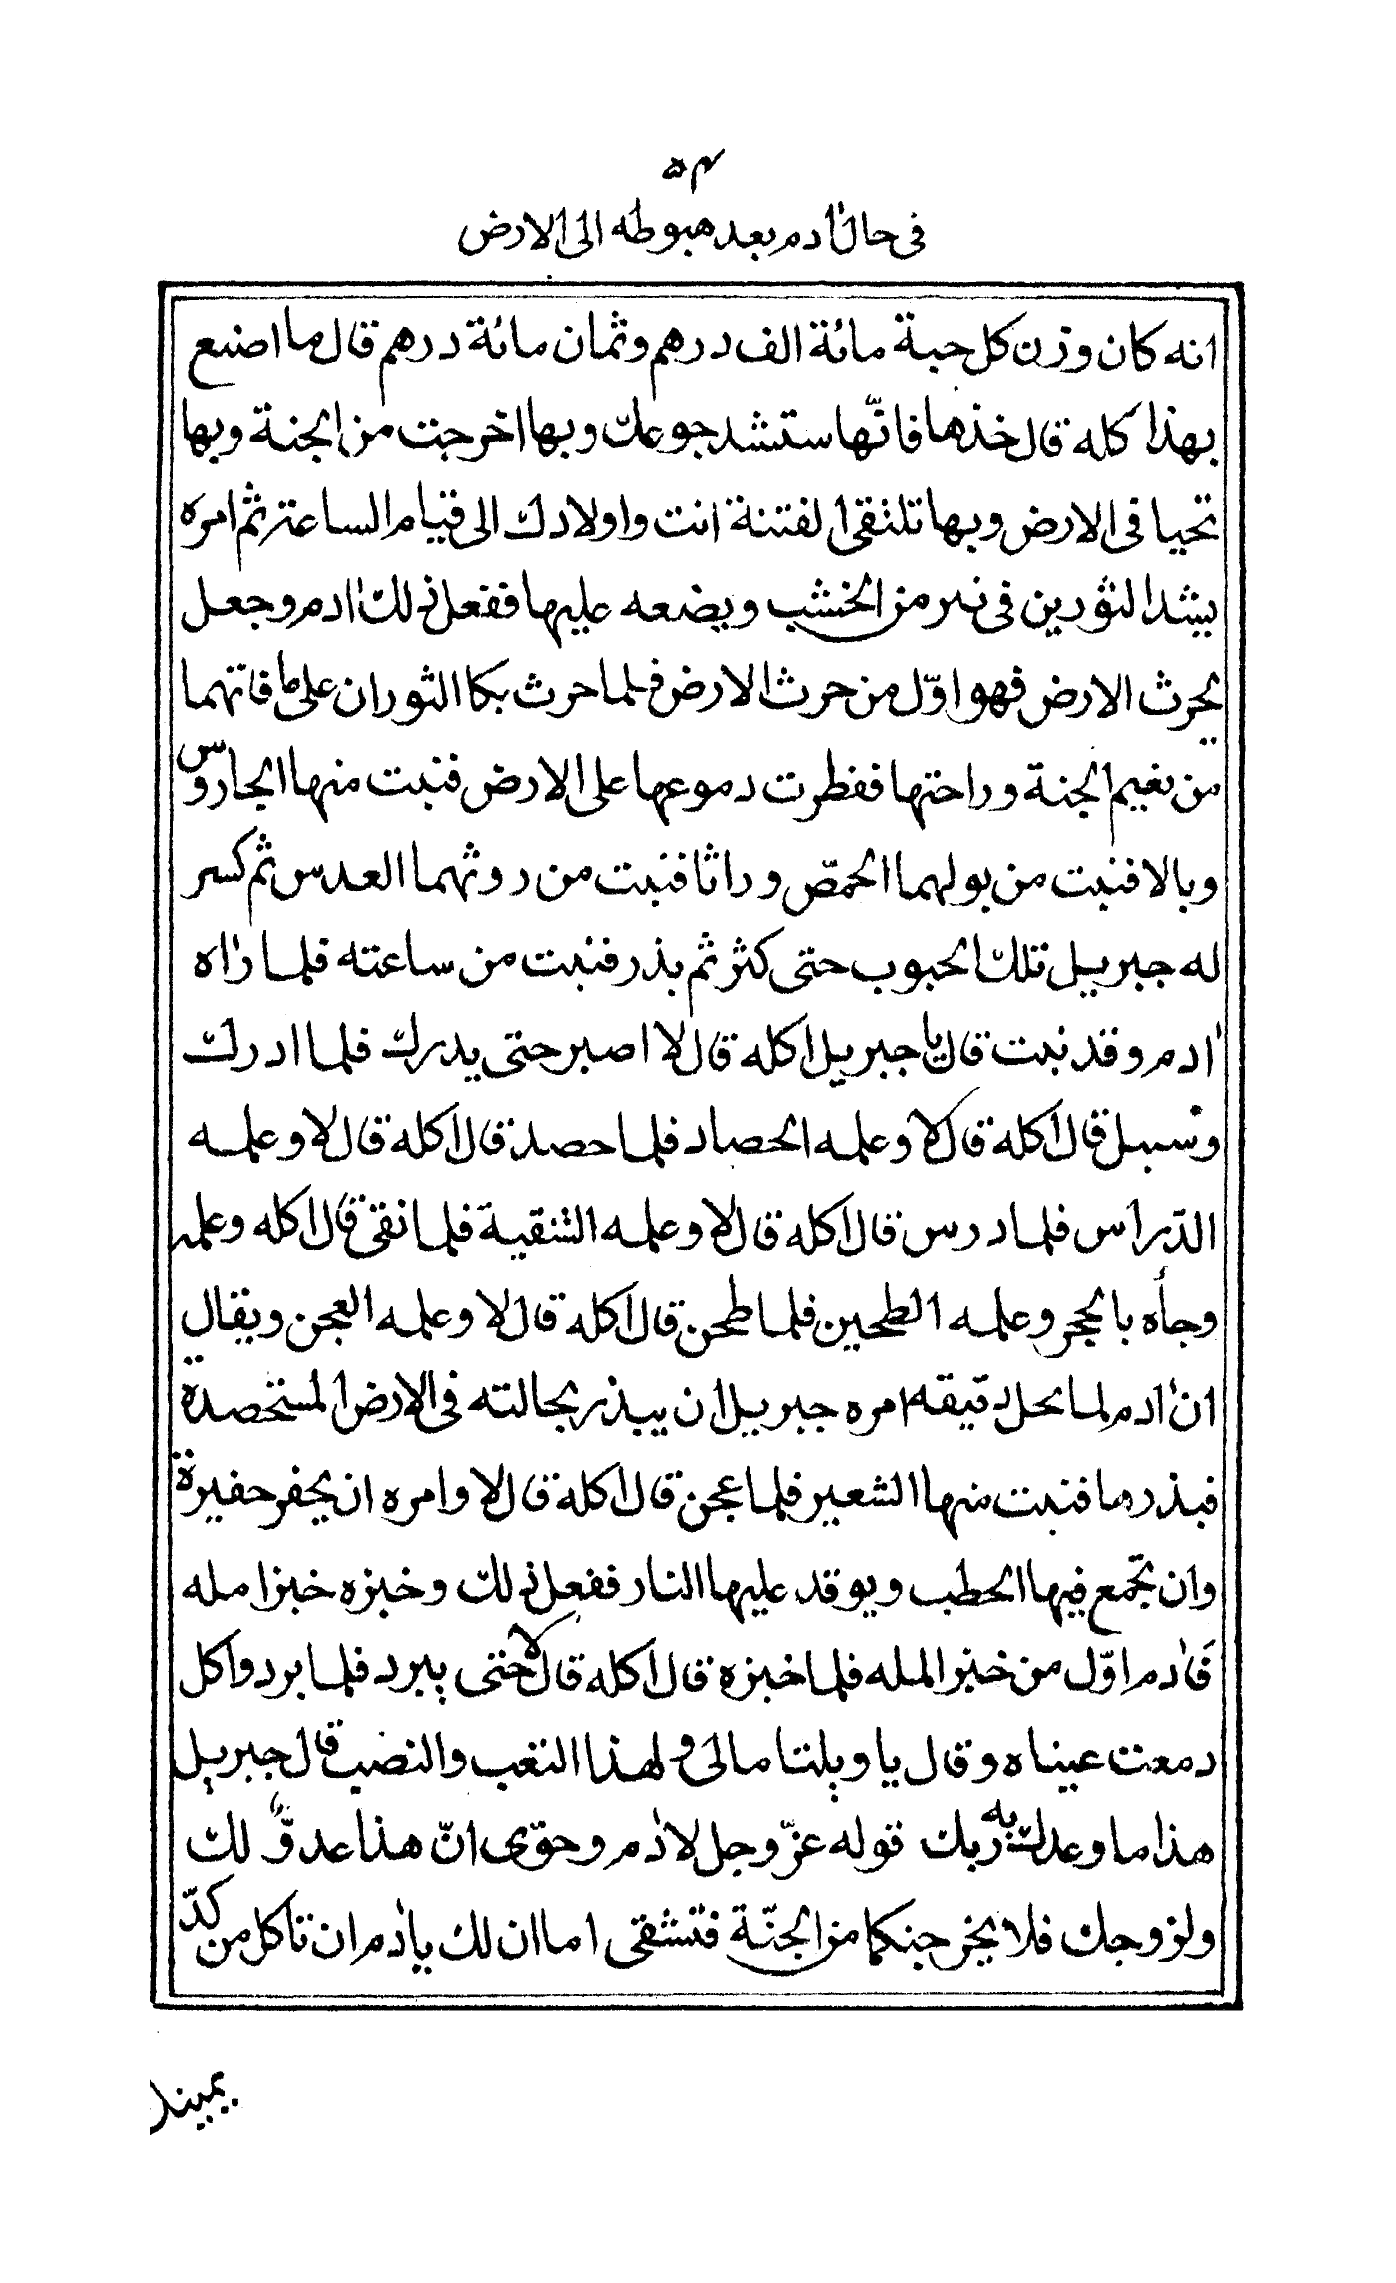 ٥٤
في حال اٰدم بعد هبوطه الى الارض
انه كان وزن كل حبة مائة الف درهم وثمان مائة درهم قال ما اضع
بهذا كله قال خذها فانّها ستشد جوعك وبها اخرجت من الجنة وبها
تحيا فى الارض وبها تلقى الفتنة انت واولادك الى قيام الساعة ثم امره
يشد الثورين فى نير من الخشب ويضعه عليها ففعل ذلك اٰدم وجعل
يحرث الارض فهو اوّل من حرث الارض فلما حرث بكا الثوران على ما فاتهما
من نعيم الجنة وراحتها فقطرت دموعها على الارض فنبت منها الجاروس
وبالا فنبت من بولهما الحمّص وراثا فنبت من روثهما العدس ثم كسر
له جبريل تلك الحبوب حتى كثر ثم بذر فنبت من ساعته فلما راٰه
اٰدم وقد نبت قال يا جبريل اكله قال لا اصبر حتى يدرك فلما ادرك
وسبل قال اكله قال لا وعلمه الحصاد فلما حصد قال اكله قال لا وعلمه
الدّراس فلما درس قال اكله قال لا وعلمه التنقية فلما نقى قال اكله وعلمه
وجأه بالحجر وعلمه الطحين فلما طحن قال اكله قال لا وعلمه العجن ويقال
ان اٰدم لما نحل دقيقه امره جبريل ان يبذر بحالته فى الارض المستحصدة
فبذرها فنبت منها الشعير فلما عجن قال اكله قال لا وامره ان يحفر حفيرة
وان يجمع فيها الحطب ويوقد عليها النار ففعل ذلك وخبزه خبزا مله
فاٰدم اوّل من خبز المله فلما خبزه قال اكله قال لا حتى يبرد فلما برد واكل
دمعت عيناه وقال يا ويلتا مالى ولهذا التعب والنصب قال جبريل
هذا ما وعدك به ربك قوله عزّ وجل لاٰدم وحوّى انّ هذا عدوّ لك
ولزوجك فلا يخرجنكما من الجنّة فتشقى اما ان لك ياٰدم ان تاكل من كدّ
يمينك